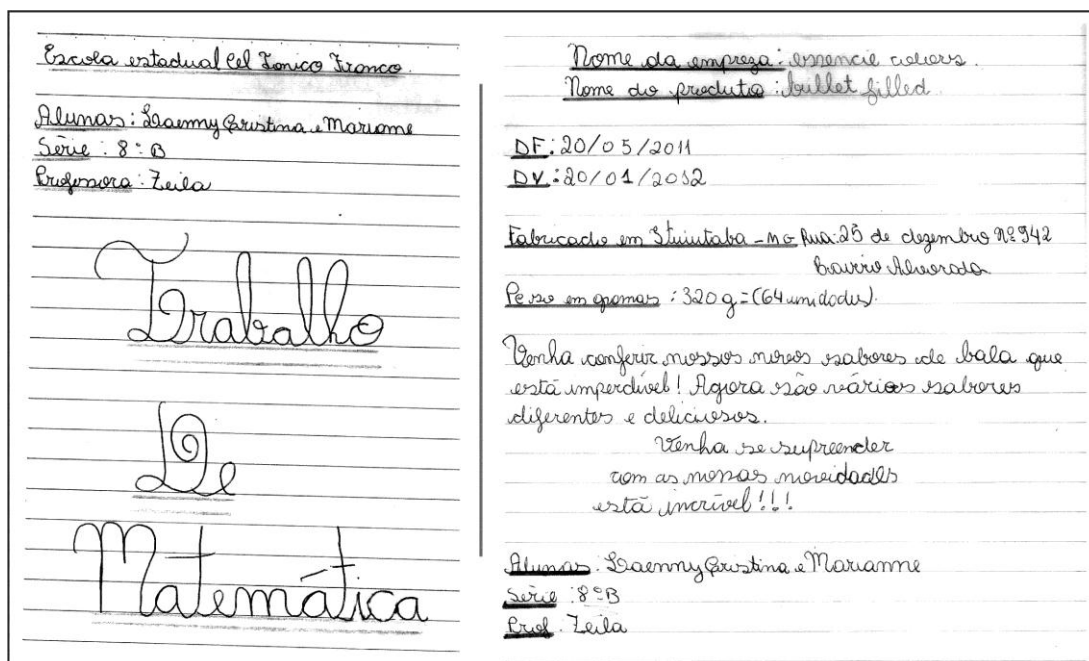 Escola estadual Cel Tonico Franco.
Alunas: Daenny Cristina e Mariane
Série: 8º B
Professora: Zeila
Trabalho
De
Matemática
Nome da empreza: essencie colors.
Nome do produto: bullet filled.
DF: 20/05/2011
DV: 20/01/2012
Fabricado em Ituiutaba - MG Rua: 25 de dezembro Nº 942
Bairro Alvorada
Peso em gramas: 320 g = (64 unidades).
Venha conferir nossos novos sabores de bala que
está imperdível! Agora são vários sabores
diferentes e deliciosos.
Venha se supreender
com as nossas novidades
está incrível!!!
Alunas: Daenny Cristina e Marianne
Série: 8º B
Prof: Zeila